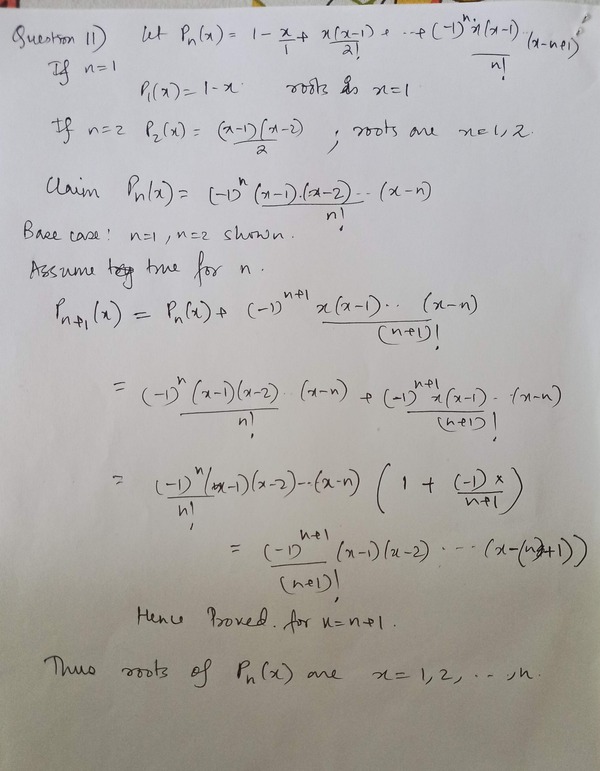 Question 11) Let Pn(x) = 1 - x/1 + x(x-1)/2! + ... + (-1)^n x(x-1)...(x-n+1)/n!
If n=1
P1(x) = 1-x. roots is x=1
If n=2 P2(x) = (x-1)(x-2)/2 ; roots are x=1,2.
Claim Pn(x) = (-1)^n (x-1).(x-2)...(x-n)/n!
Base case: n=1, n=2 shown.
Assume true for n.
Pn+1(x) = Pn(x) + (-1)^(n+1) x(x-1)...(x-n)/(n+1)!
= (-1)^n (x-1)(x-2)..(x-n)/n! + (-1)^(n+1) x(x-1)..(x-n)/(n+1)!
= (-1)^n/n! (x-1)(x-2)...(x-n) (1 + (-1)x/(n+1))
= (-1)^(n+1)/(n+1)! (x-1)(x-2)....(x-(n+1))
Hence Proved. for n=n+1.
Thus roots of Pn(x) are x=1,2,...,n.